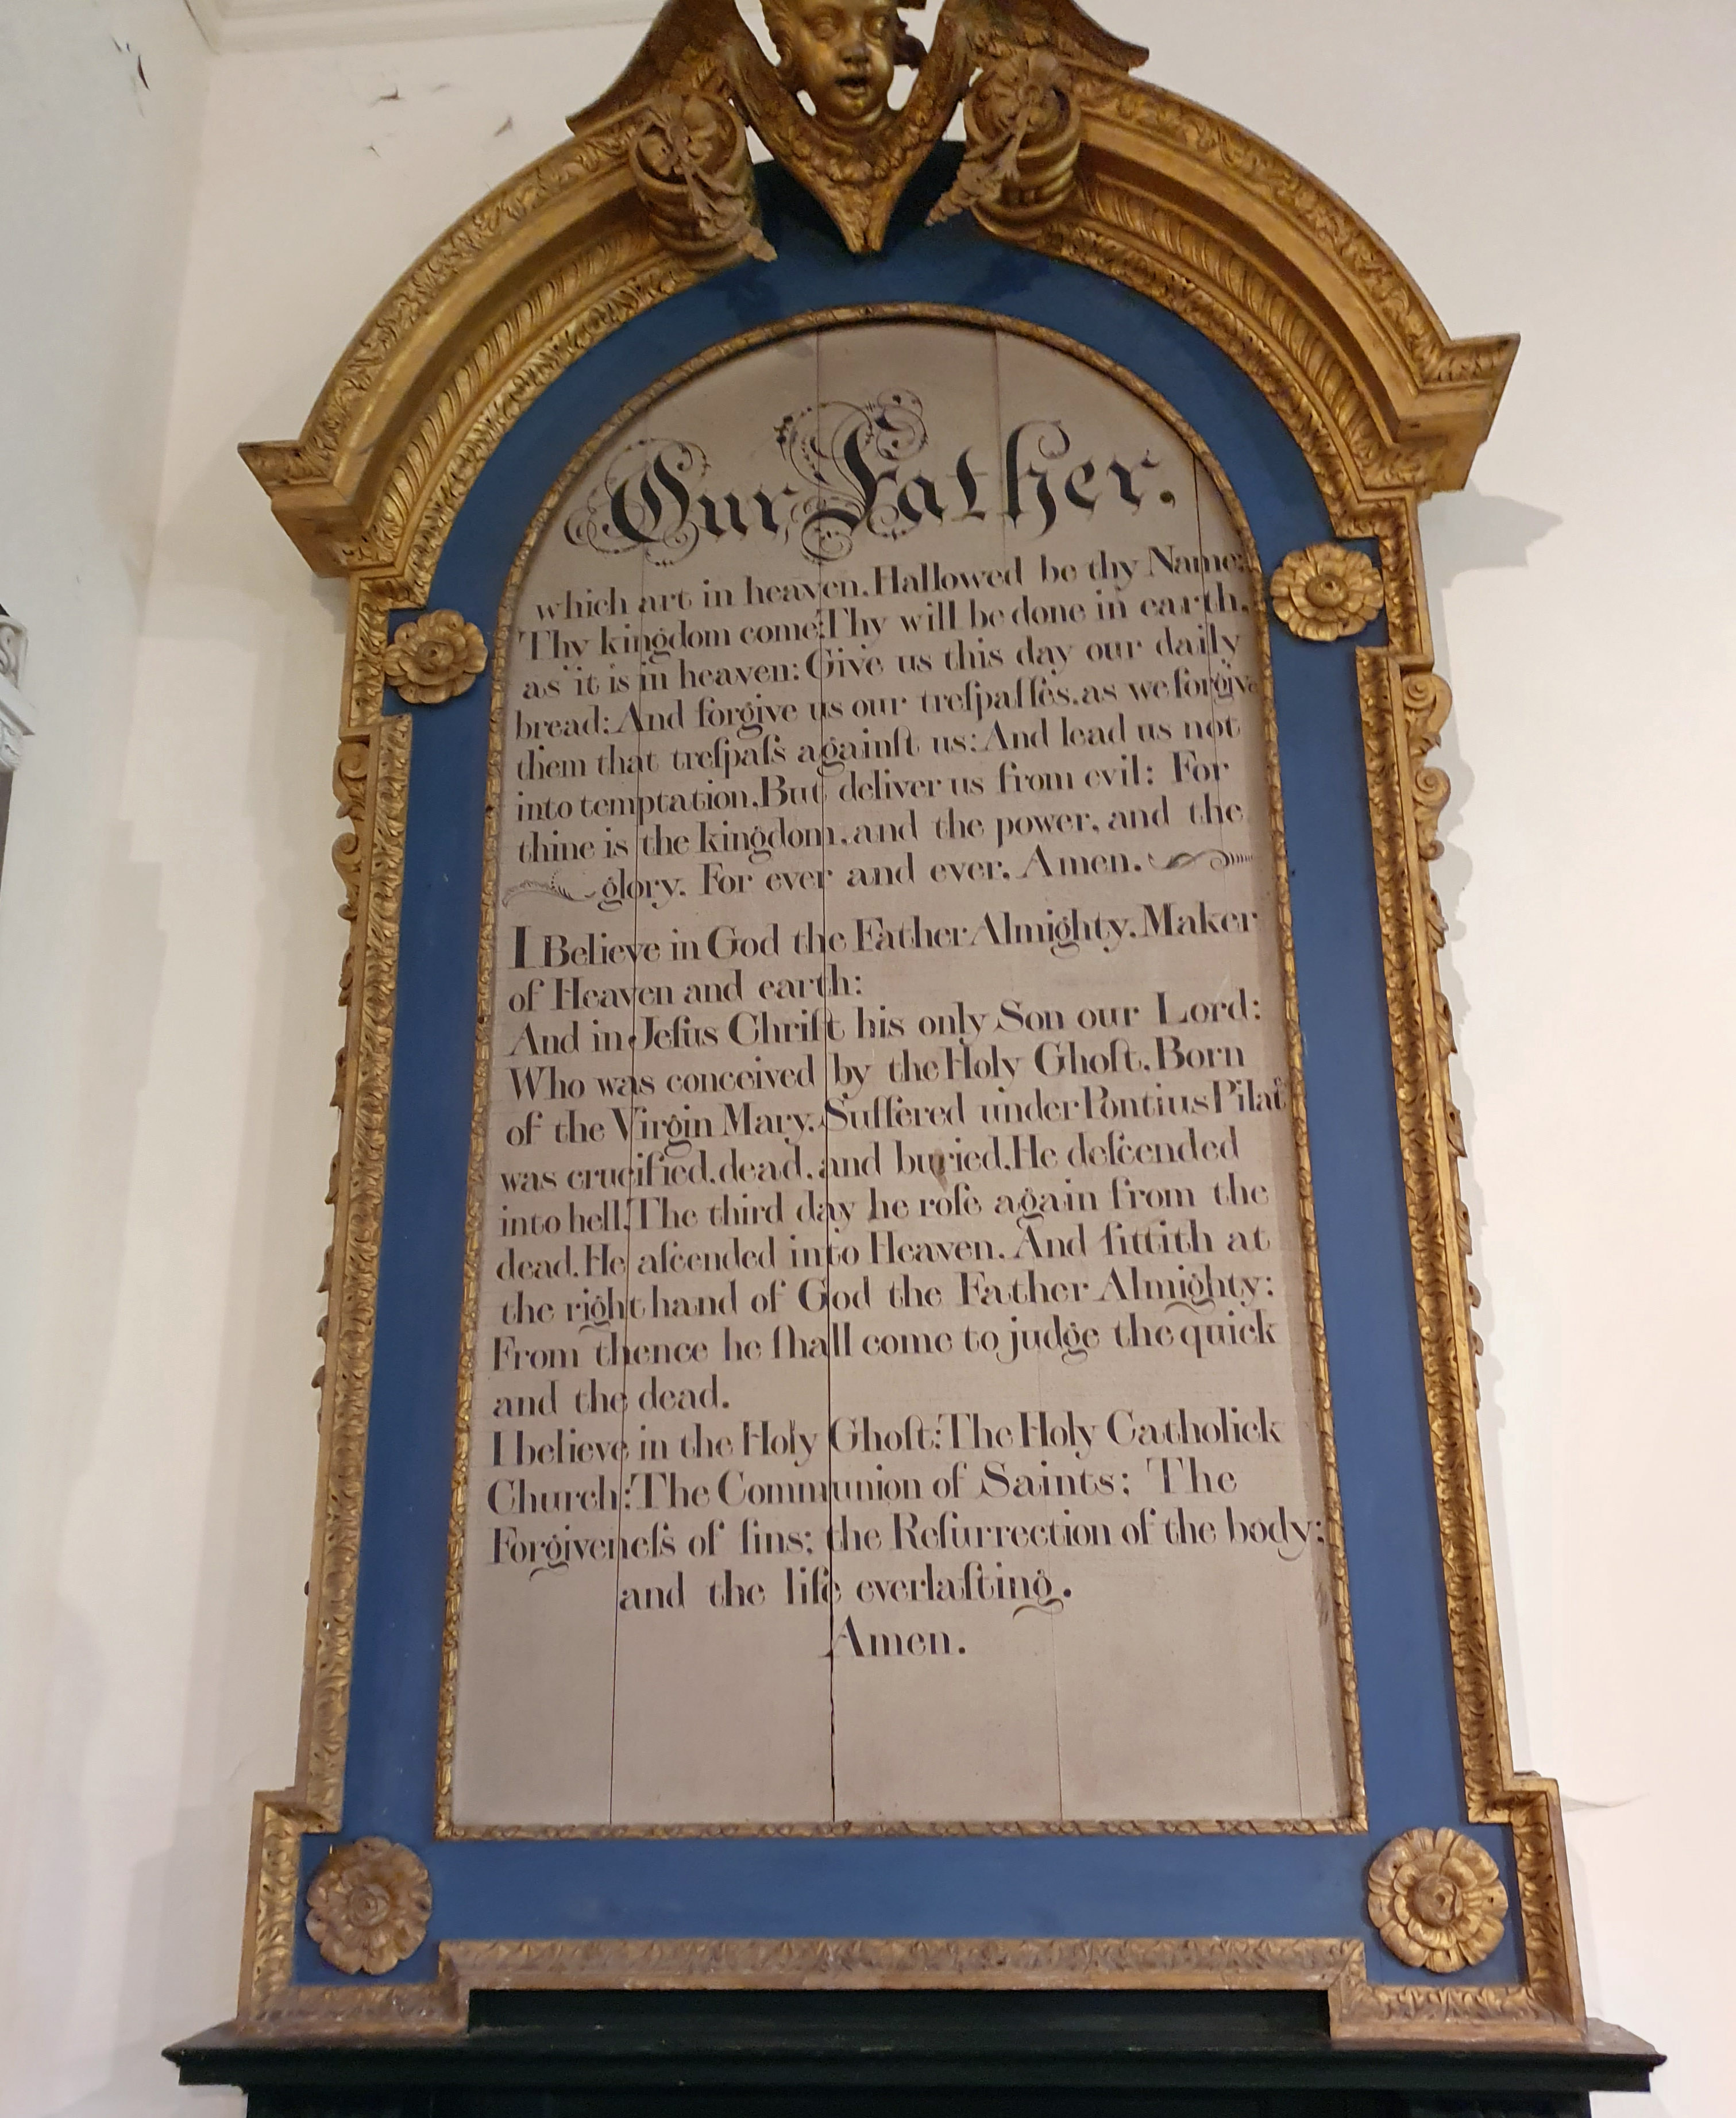 Our Father.
which art in heaven. Hallowed be thy Name:
Thy kingdom come: Thy will be done in earth,
as it is in heaven: Give us this day our daily
bread: And forgive us our treſpaſſes. as we forgive
them that treſpaſs againſt us: And lead us not
into temptation, But deliver us from evil: For
thine is the kingdom, and the power, and the
glory. For ever and ever. Amen.
I Believe in God the Father Almighty. Maker
of Heaven and earth:
And in Jeſus Chriſt his only Son our Lord:
Who was conceived by the Holy Ghoſt. Born
of the Virgin Mary. Suffered under Pontius Pilat
was crucified, dead, and buried. He deſcended
into hell. The third day he roſe again from the
dead. He aſcended into Heaven. And ſittith at
the right hand of God the Father Almighty:
From thence he ſhall come to judge the quick
and the dead.
I believe in the Holy Ghoſt: The Holy Catholick
Church: The Communion of Saints; The
Forgiveneſs of ſins; the Reſurrection of the body;
and the life everlaſting.
Amen.